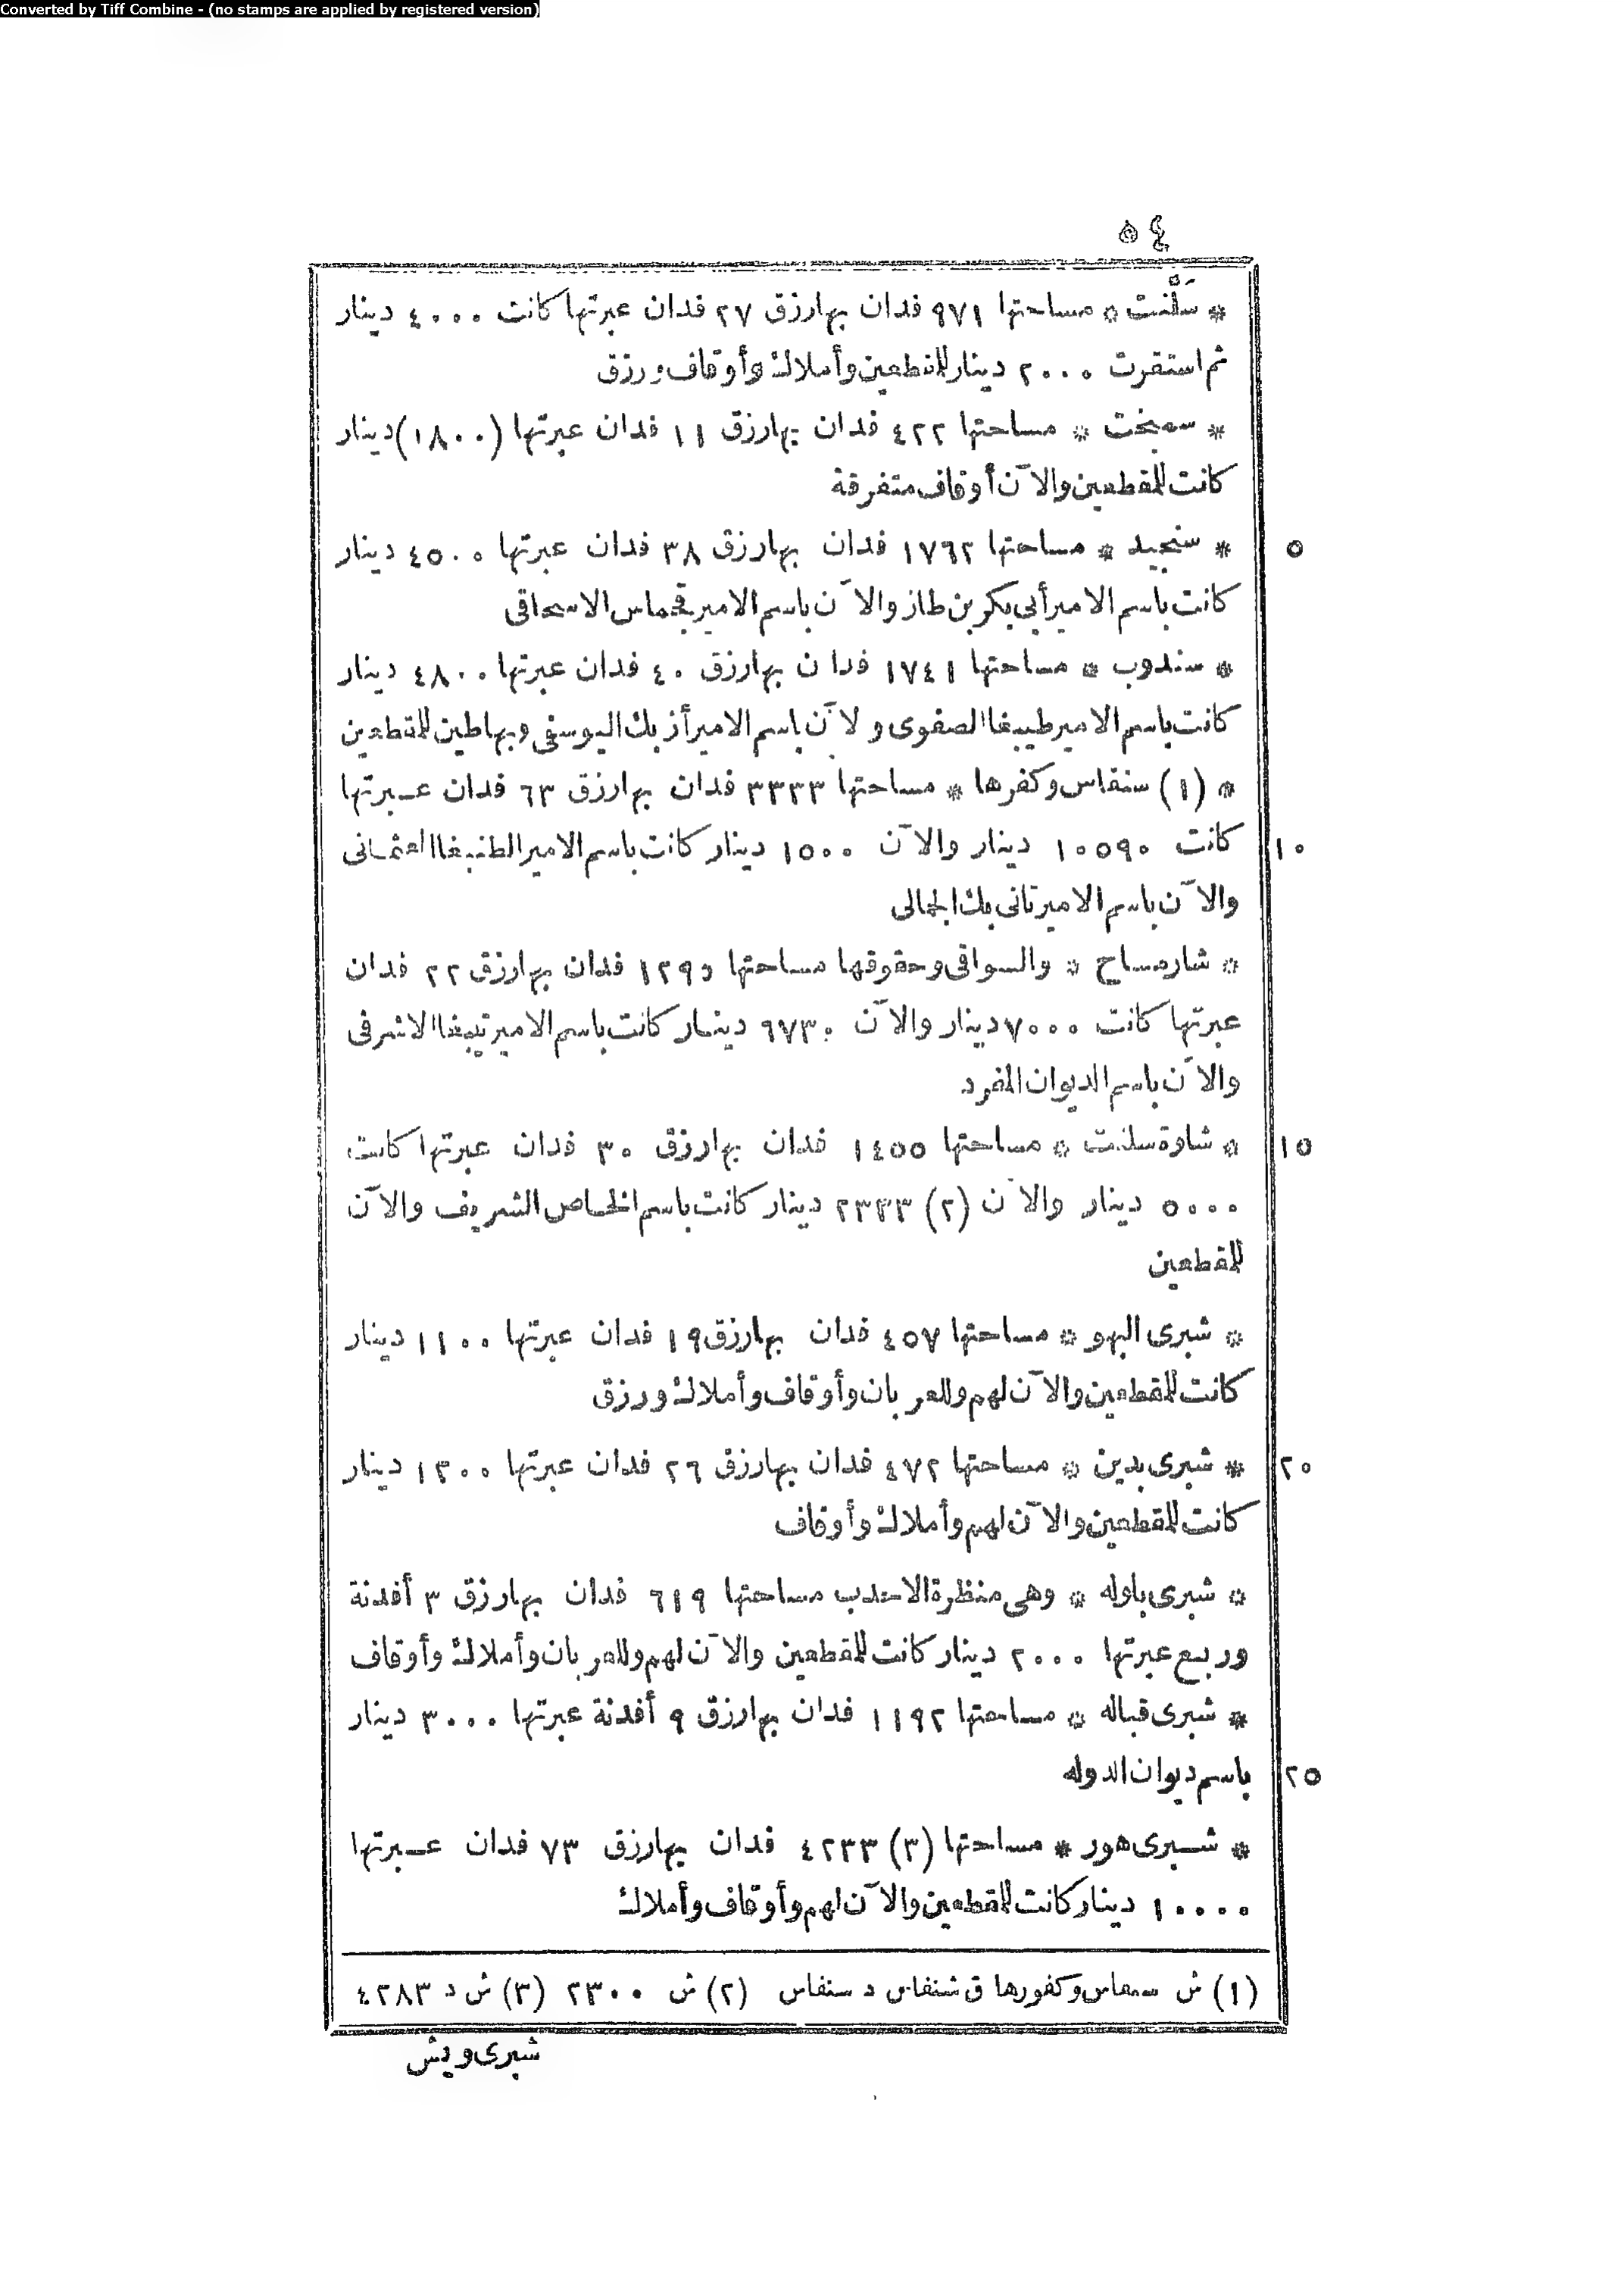 Converted by Tiff Combine - (no stamps are applied by registered version)
٥٤
* سَلَنْت * مساحتها ٩٧١ فدان بها رزق ٢٧ فدان عبرتها كانت ٤٠٠٠ دينار
ثم استقرت ٢٠٠٠ دينار للمقطعين وأملاك وأوقاف ورزق
* سمبخت * مساحتها ٤٢٢ فدان بها رزق ١١ فدان عبرتها (١٨٠٠) دينار
كانت للمقطعين والآن أوقاف متفرقة
٥ * سنجيد * مساحتها ١٧٦٢ فدان بها رزق ٣٨ فدان عبرتها ٤٥٠٠ دينار
كانت باسم الامير أبى بكر بن طاز والآن باسم الامير قجماس الاسحاقى
* سندوب * مساحتها ١٧٤١ فدان بها رزق ٤٠ فدان عبرتها ٤٨٠٠ دينار
كانت باسم الامير طيبغا الصفوى ولآن باسم الامير أزبك اليوسفى وبها طين للمقطعين
* (١) سنقاس وكفرها * مساحتها ٣٣٣٣ فدان بها رزق ٦٣ فدان عبرتها
١٠ كانت ١٠٥٩٠ دينار والآن ١٥٠٠ دينار كانت باسم الامير الطنبغا العثمانى
والآن باسم الامير تانى بك الجمالى
* شارمساح * والسواقى وحقوقها مساحتها ١٢٩٥ فدان بها رزق ٢٢ فدان
عبرتها كانت ٧٠٠٠ دينار والآن ٦٧٣٠ دينار كانت باسم الامير تنبغا الاشرفى
والآن باسم الديوان المفرد
١٥ * شاوة سلنت * مساحتها ١٤٥٥ فدان بها رزق ٣٠ فدان عبرتها كانت
٥٠٠٠ دينار والآن (٢) ٢٣٣٣ دينار كانت باسم الخاص الشريف والآن
للمقطعين
* شبرى البهو * مساحتها ٤٥٧ فدان بها رزق ١٩ فدان عبرتها ١١٠٠ دينار
كانت للمقطعين والآن لهم وللعربان وأوقاف وأملاك ورزق
٢٠ * شبرى بدين * مساحتها ٤٧٢ فدان بها رزق ٢٦ فدان عبرتها ١٣٠٠ دينار
كانت للمقطعين والآن لهم وأملاك وأوقاف
* شبرى باوله * وهى منظرة الاحدب مساحتها ٦١٩ فدان بها رزق ٣ أفدنة
وربع عبرتها ٢٠٠٠ دينار كانت للمقطعين والآن لهم وللعربان وأملاك وأوقاف
* شبرى قباله * مساحتها ١١٩٢ فدان بها رزق ٩ أفدنة عبرتها ٣٠٠٠ دينار
٢٥ باسم ديوان الدوله
* شبرى هور * مساحتها (٣) ٤٢٣٣ فدان بها رزق ٧٣ فدان عبرتها
١٠٠٠٠ دينار كانت للمقطعين والآن لهم وأوقاف وأملاك
(١) ش وكفورها ق شنفاس د سنفاس (٢) ش ٢٣٠٠ (٣) ش د ٤٢٨٣
شبرى ويش